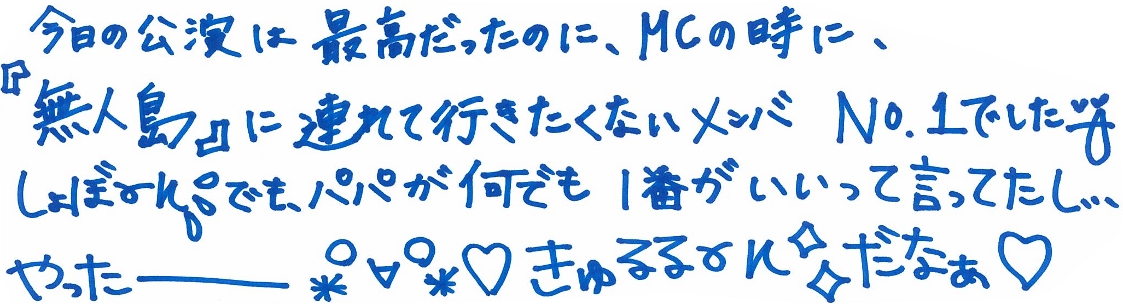 今日の公演は最高だったのに、MCの時に、
『無人島』に連れて行きたくないメンバ No.1でした
しょぼーん。でも、パパが何でも1番がいいって言ってたし…
やった――― *°∀°*♡きゅるるーん✧✧だなぁ♡